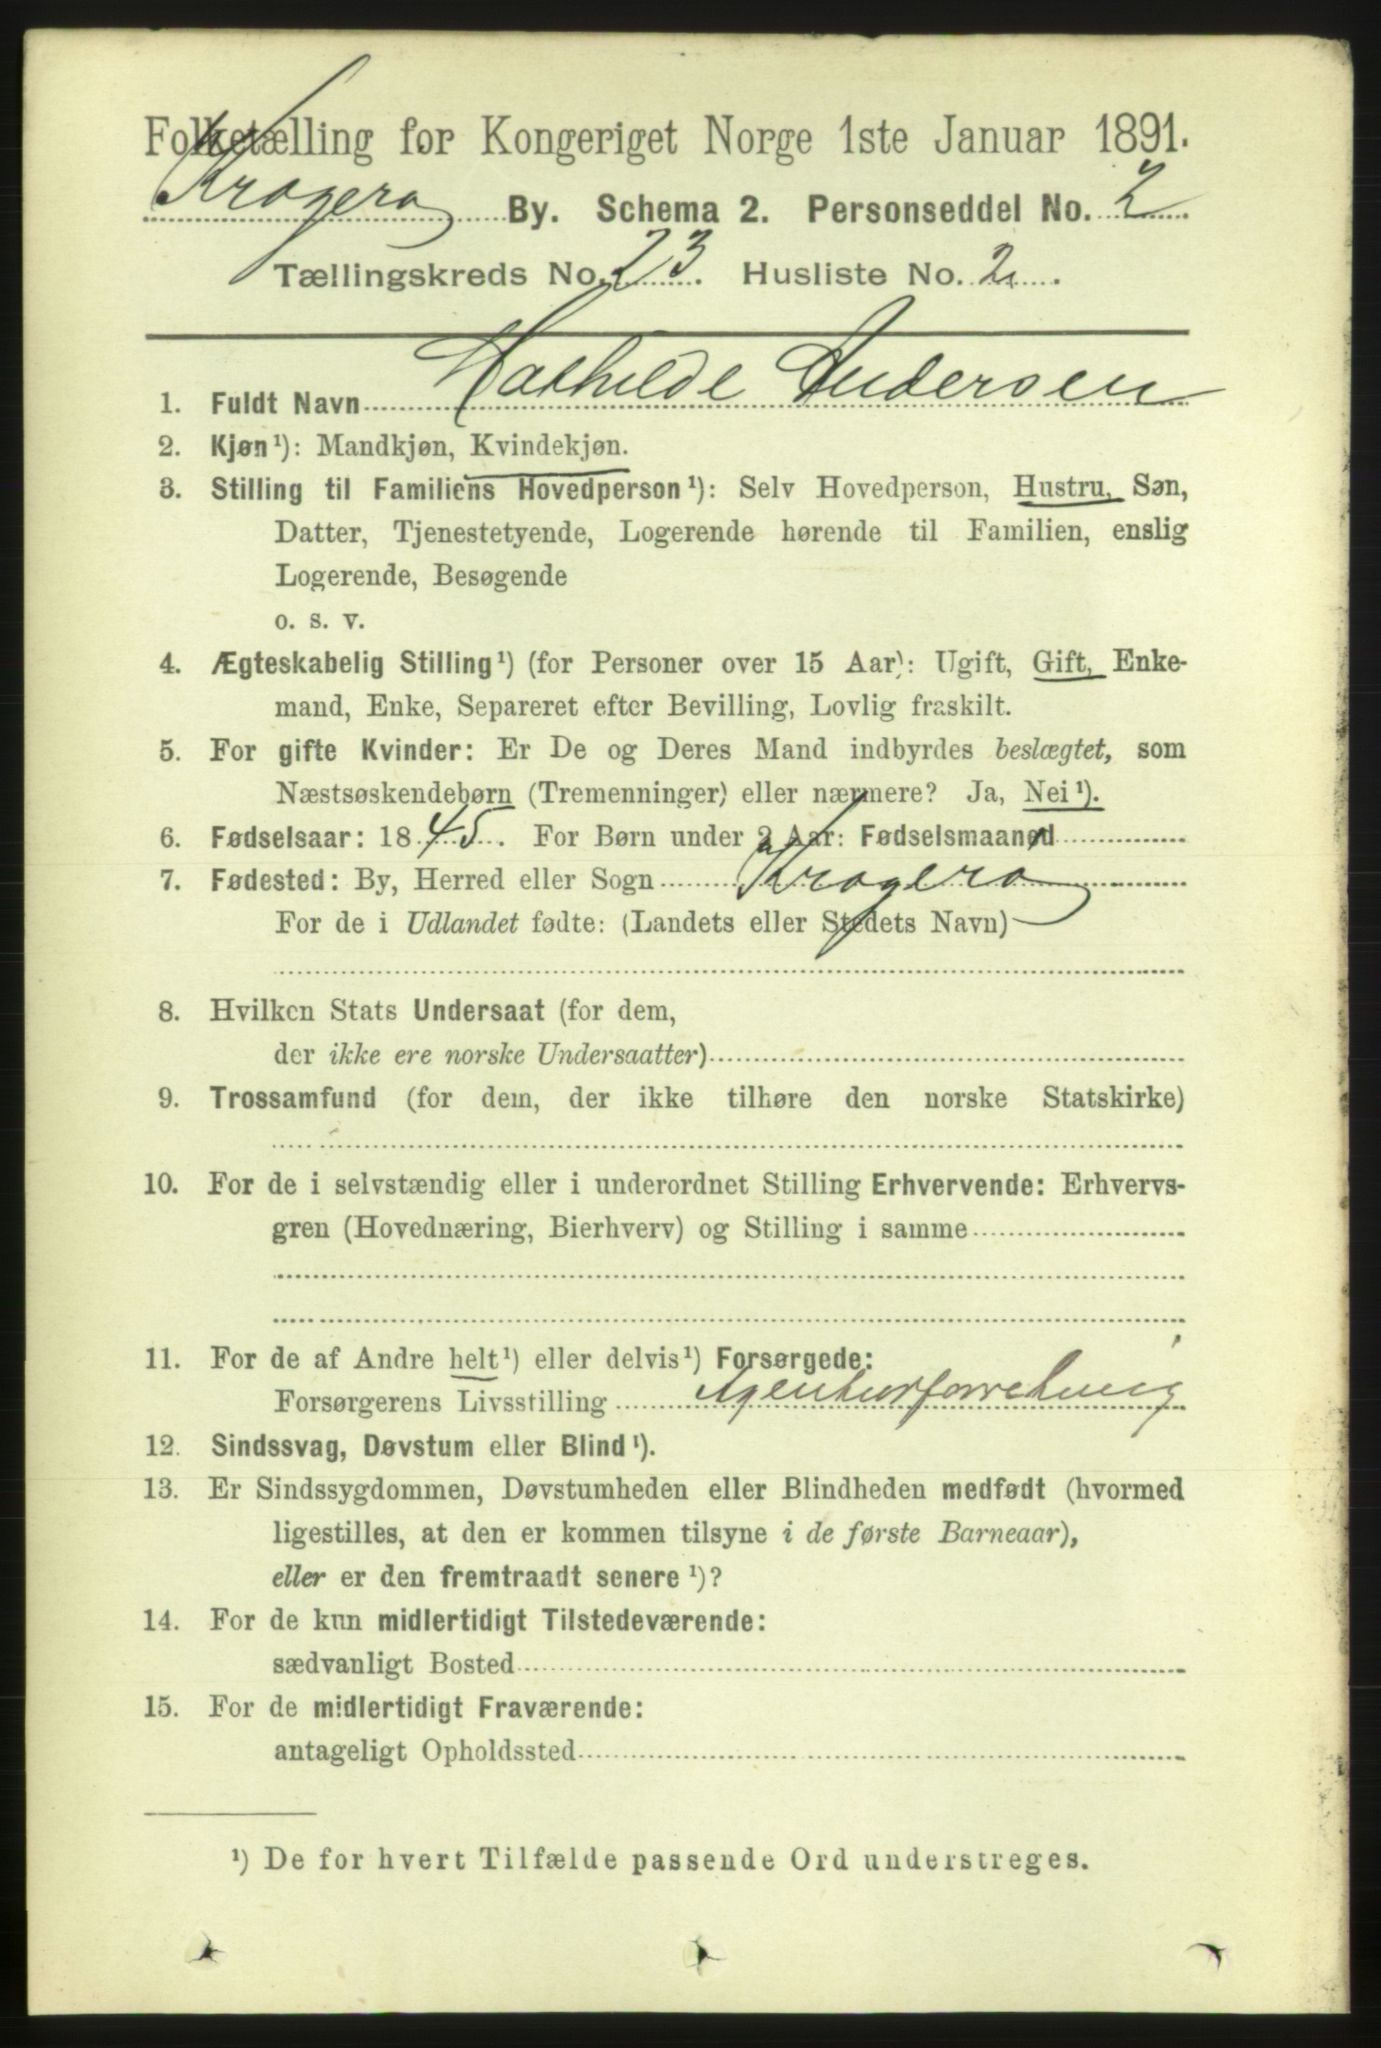 Folketælling for Kongeriget Norge 1ste Januar 1891.
Kragerø By. Schema 2. Personseddel No. 2
Tællingskreds No. 23. Husliste No. 2.
1. Fuldt Navn Mathilde Andersen
2. Kjøn¹): Mandkjøn, Kvindekjøn.
3. Stilling til Familiens Hovedperson¹): Selv Hovedperson, Hustru, Søn,
Datter, Tjenestetyende, Logerende hørende til Familien, enslig
Logerende, Besøgende
o. s. v.
4. Ægteskabelig Stilling¹) (for Personer over 15 Aar): Ugift, Gift, Enke-
mand, Enke, Separeret efter Bevilling, Lovlig fraskilt.
5. For gifte Kvinder: Er De og Deres Mand indbyrdes beslægtet, som
Næstsøskendebørn (Tremenninger) eller nærmere? Ja, Nei¹).
6. Fødselsaar: 1845. For Børn under 2 Aar: Fødselsmaaned
7. Fødested: By, Herred eller Sogn Kragerø
For de i Udlandet fødte: (Landets eller Stedets Navn)
8. Hvilken Stats Undersaat (for dem,
der ikke ere norske Undersaatter)
9. Trossamfund (for dem, der ikke tilhøre den norske Statskirke)
10. For de i selvstændig eller i underordnet Stilling Erhvervende: Erhvervs-
gren (Hovednæring, Bierhverv) og Stilling i samme
11. For de af Andre helt¹) eller delvis¹) Forsørgede:
Forsørgerens Livsstilling Agenturforretning
12. Sindssvag, Døvstum eller Blind¹).
13. Er Sindssygdommen, Døvstumheden eller Blindheden medfødt (hvormed
ligestilles, at den er kommen tilsyne i de første Barneaar),
eller er den fremtraadt senere¹)?
14. For de kun midlertidigt Tilstedeværende:
sædvanligt Bosted
15. For de midlertidigt Fraværende:
antageligt Opholdssted
¹) De for hvert Tilfælde passende Ord understreges.